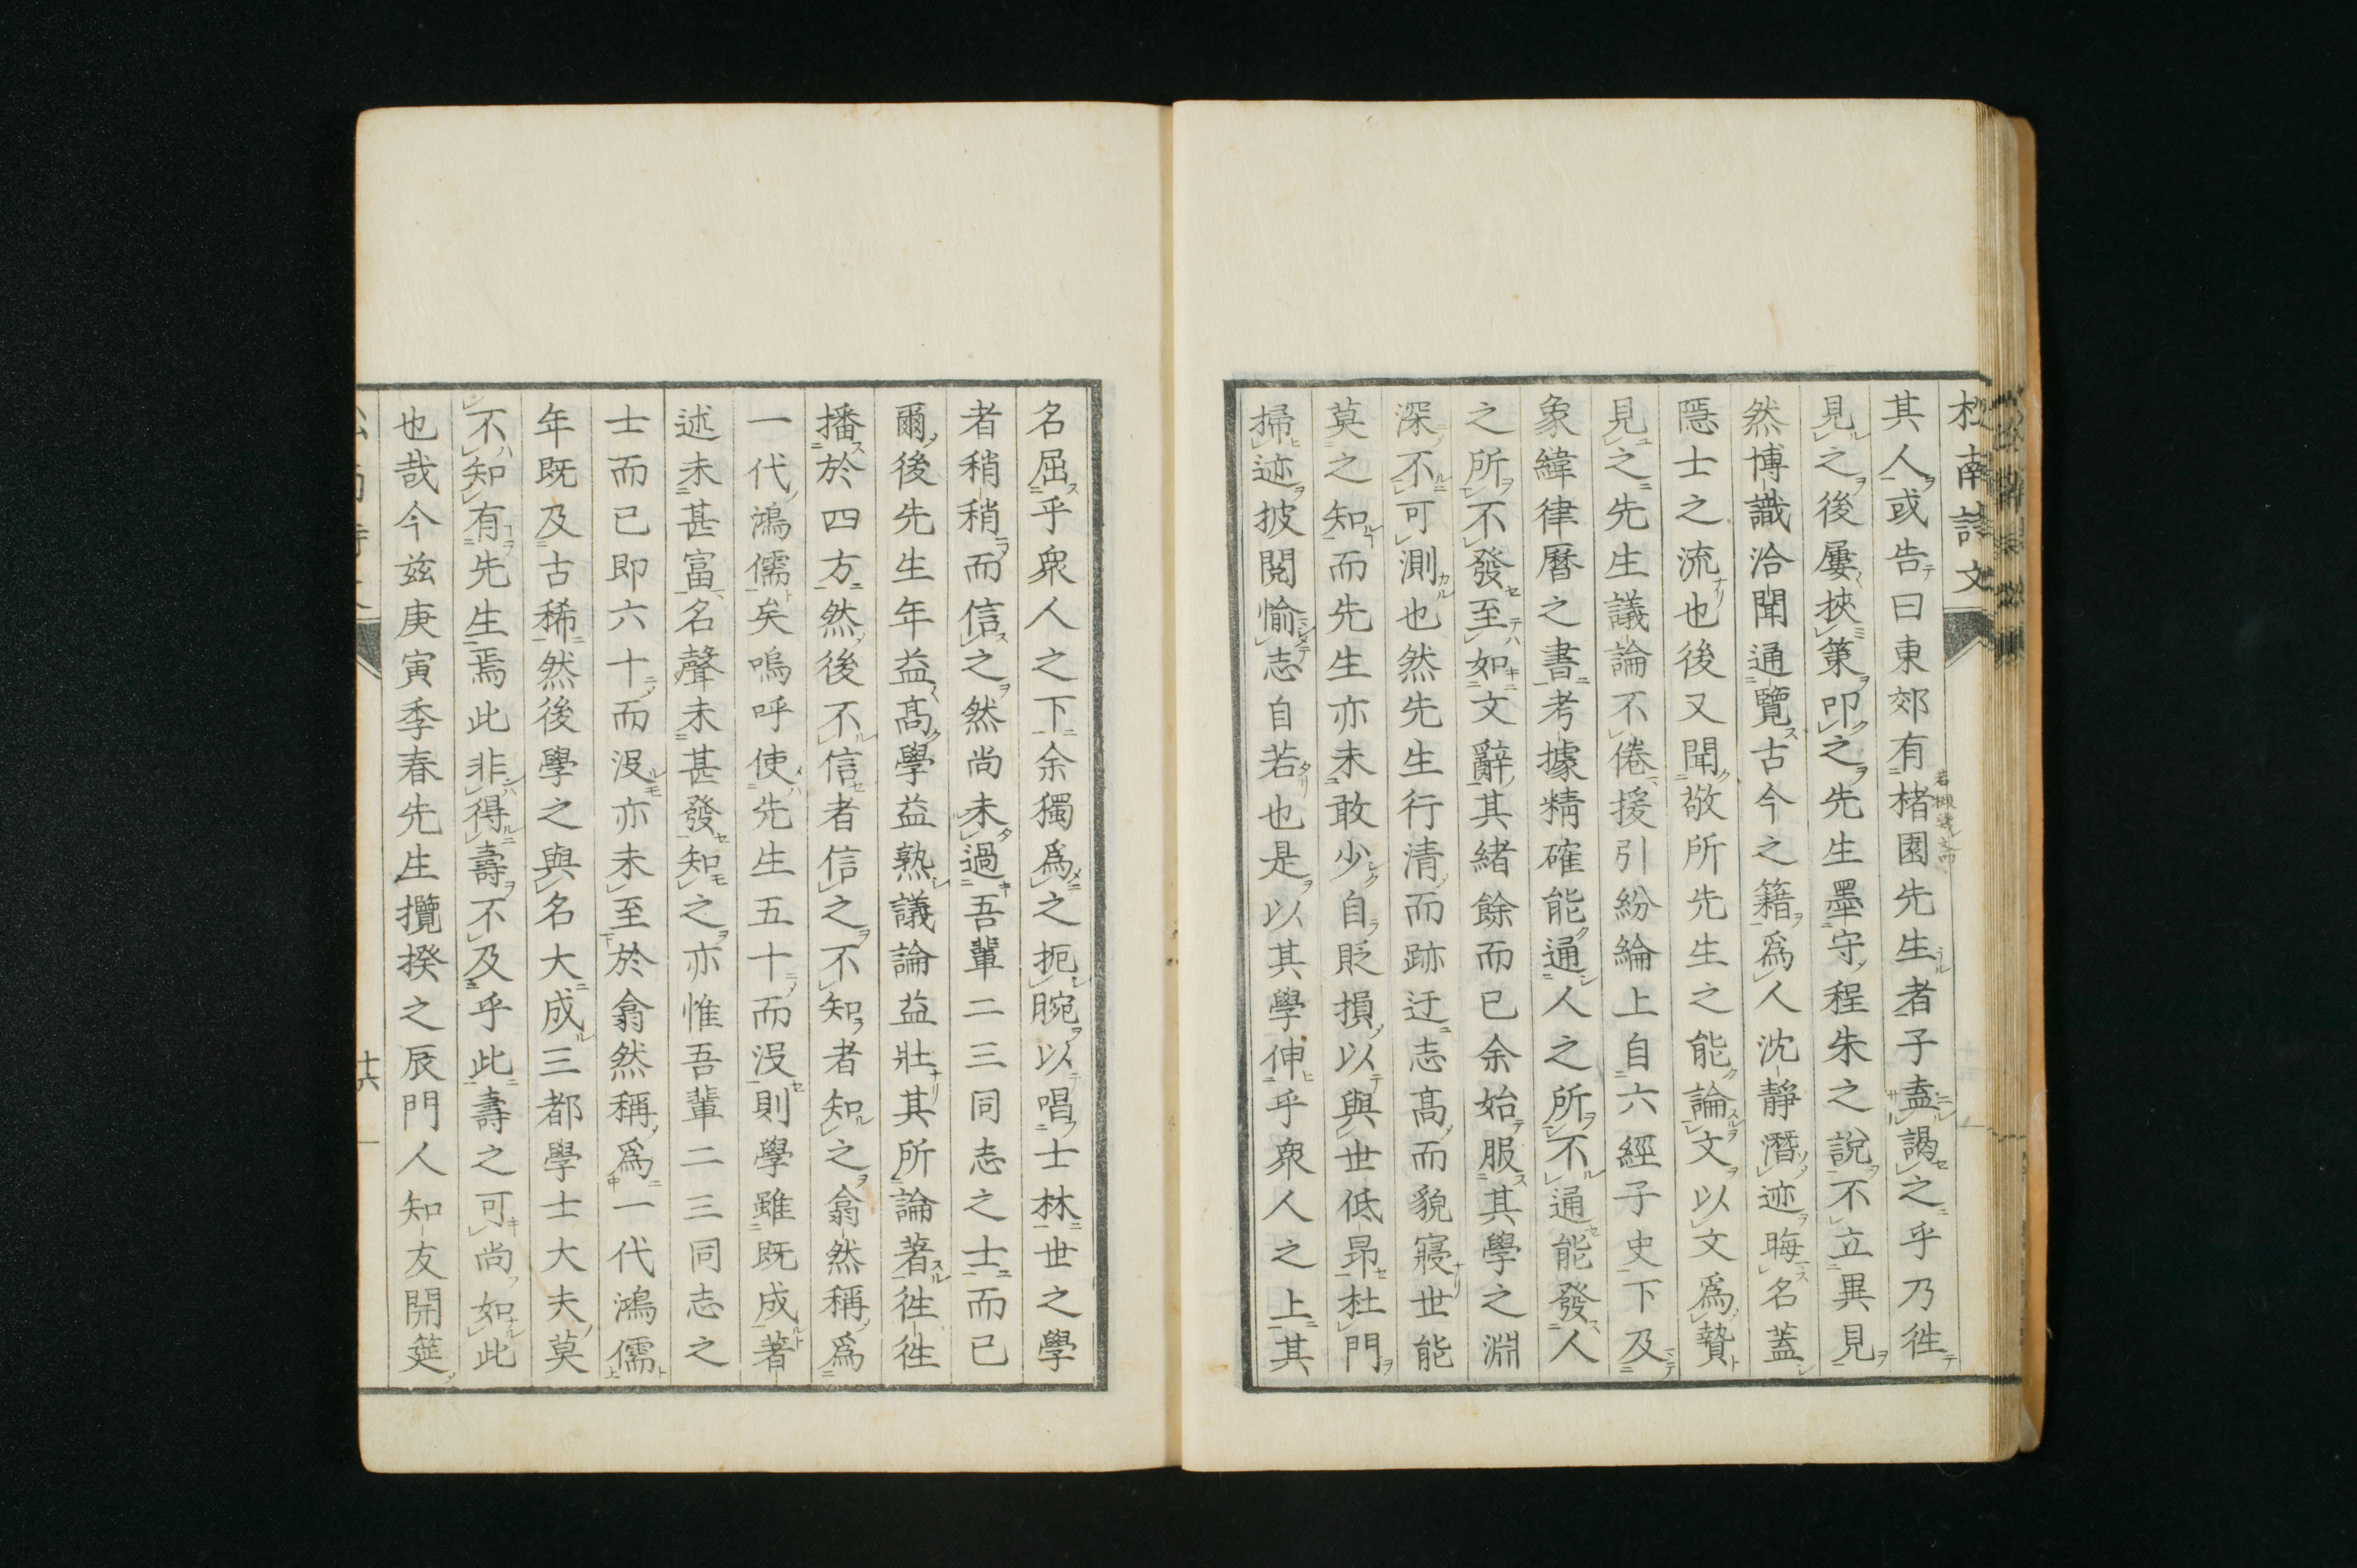 松南詩文
其人或告曰東郊有楮園先生者子盍謁之乎乃徃
見之後屢挾策叩之先生墨守程朱之說不立異見
然博識洽聞通覽古今之籍爲人沈靜潛迹晦名蓋
隱士之流也後又聞敬所先生之能論文以文爲贄
見之先生議論不倦援引紛綸上自六經子史下及
象緯律曆之書考據精確能通人之所不通能發人
之所不發至如文辭其緒餘而已余始服其學之淵
深不可測也然先生行清而跡迂志高而貌寢世能
莫之知而先生亦未敢少自貶損以與世低昂杜門
掃迹披閱愉志自若也是以其學伸乎衆人之上其
名屈乎衆人之下余獨爲之扼腕以唱士林世之學
者稍稍而信之然尚未過吾輩二三同志之士而已
爾後先生年益髙學益熟議論益壯其所論著徃徃
播於四方然後不信者信之不知者知之翕然稱爲
一代鴻儒矣嗚呼使先生五十而沒則學雖既成著
述未甚富名聲未甚發知之亦惟吾輩二三同志之
士而已即六十而沒亦未至於翕然稱爲一代鴻儒
年既及古稀然後學之與名大成三都學士大夫莫
不知有先生焉此非得壽不及乎此壽之可尚如此
也哉今茲庚寅季春先生攬揆之辰門人知友開筵
十六